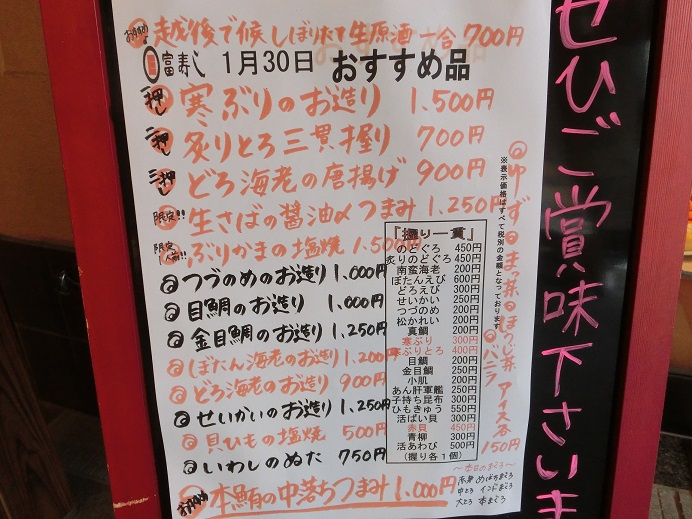 おすすめ 越後で候 しぼりたて生原酒 一合 700円
富寿し 1月30日 おすすめ品
一押し 寒ぶりのお造り 1.500円
二押し 炙りとろ三貫握り 700円
三押し どろ海老の唐揚げ 900円
限定!! 生さばの醤油〆つまみ 1.250円
限定 ぶりかまの塩焼 1.500円
つづのめのお造り 1.000円
目鯛のお造り 1.000円
金目鯛のお造り 1.250円
ぼたん海老のお造り 1.200円
どろ海老のお造り 900円
せいかいのお造り 1.250円
貝ひもの塩焼 500円
いわしのぬた 750円
おすすめ 本鮪の中落ちつまみ 1.000円
「握り一貫」
のどぐろ 450円
炙りのどぐろ 450円
南蛮海老 200円
ぼたんえび 600円
どろえび 300円
せいかい 250円
つづのめ 200円
松かれい 200円
真鯛 200円
寒ぶり 300円
寒ぶりとろ 400円
目鯛 200円
金目鯛 250円
小肌 200円
あん肝軍艦 250円
子持ち昆布 300円
ひもきゅう 550円
活ばい貝 300円
赤貝 450円
青柳 300円
活あわび 500円
(握り各1個)
※表示価格はすべて税別の金額となっております
ゆず まっ茶 ほうじ茶 バニラ
アイス各 150円
〜本日のまぐろ〜
赤身 めばちまぐろ
中とろ インドまぐろ
大とろ 本まぐろ
ぜひご賞味下さいま